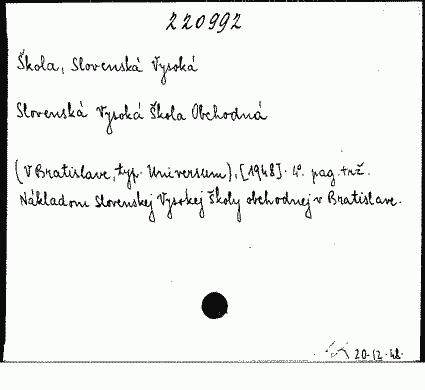 220992
Škola, Slovenská Vysoká
Slovenská Vysoká Škola Obchodná
(V Bratislave, typ. Universum), [1948]. 4°. pag. +rž.
Nákladom Slovenskej Vysokej Školy obchodnej v Bratislave.
20-12-48.